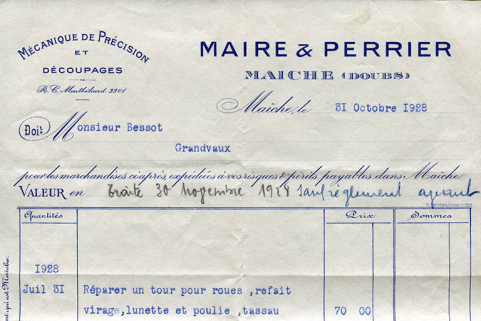 MÉCANIQUE DE PRÉCISION
ET
DÉCOUPAGES
R.C. Montbéliard 3301
MAIRE & PERRIER
MAICHE (DOUBS)
Maîche, le 31 Octobre 1928
Doit Monsieur Bessot
Grandvaux
pour les marchandises ci-après, expédiées à vos risques & périls, payables dans Maîche
VALEUR en traite 30 Novembre 1928 sauf règlement avant
Quantités Prix Sommes
1928
Juil 31 Réparer un tour pour roues ,refait
virage,lunette et poulie ,tassau 70 00